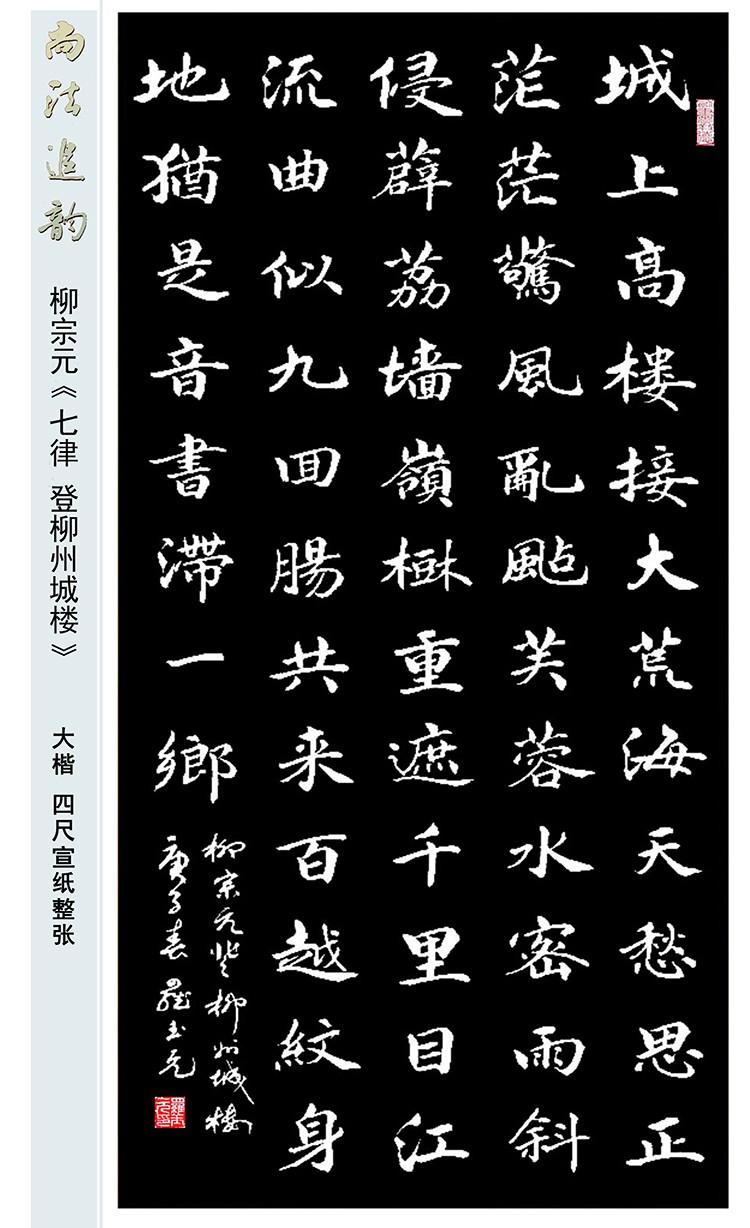 尚法追韵
柳宗元《七律 登柳州城楼》
大楷 四尺宣纸整张
城上高楼接大荒海天愁思正
茫茫驚風亂颭芙蓉水密雨斜
侵薜荔墙嶺樹重遮千里目江
流曲似九囬腸共来百越紋身
地猶是音書滯一鄉
柳宗元登柳州城楼
庚子春羅